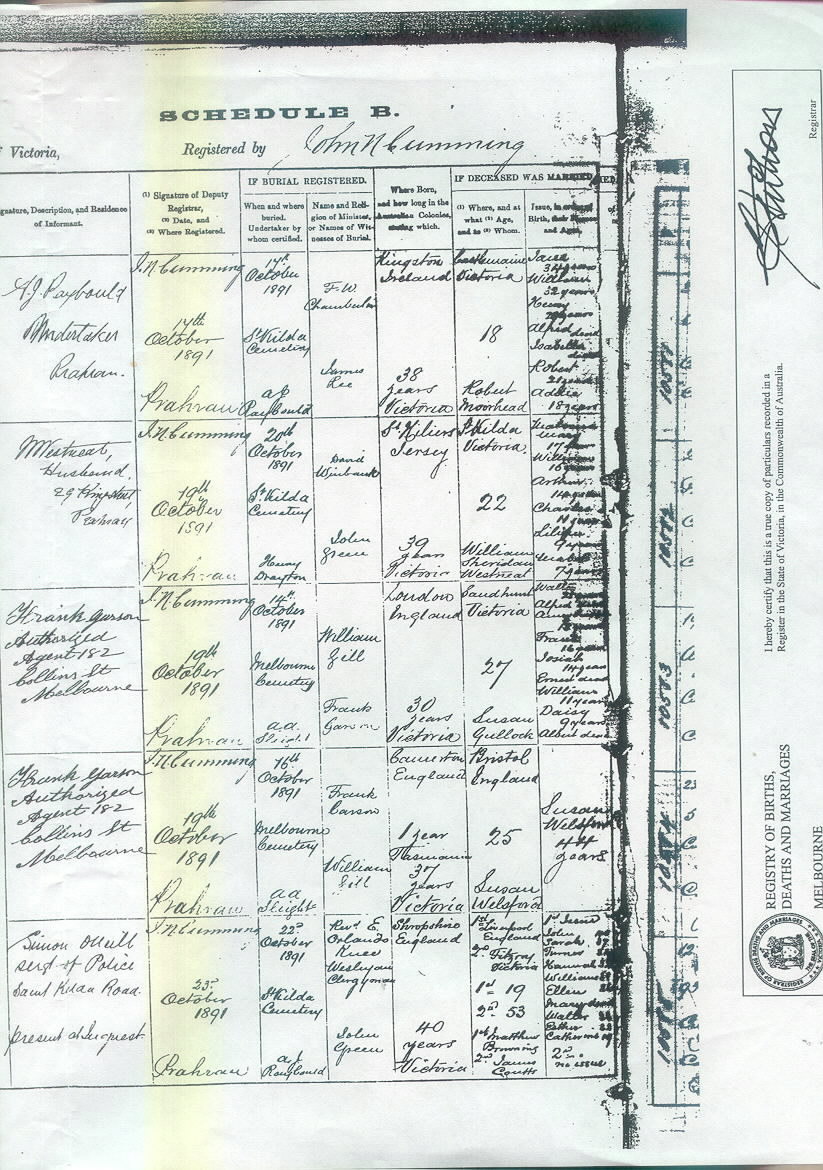 SCHEDULE B.
Victoria,
Registered by John N Cumming
Signature, Description, and Residence of Informant.
(1) Signature of Deputy Registrar,
(2) Date, and
(3) Where Registered.
IF BURIAL REGISTERED.
When and where buried.
Undertaker by whom certified.
Name and Religion of Minister, or Names of Witnesses of Burial.
Where Born, and how long in the Australian Colonies, stating which.
IF DECEASED WAS MARRIED
(1) Where, and at what (2) Age, and to (3) Whom.
Issue, in order of Birth, their Names and Ages.
A.J. Raybould
Undertaker
Prahran.
J.N. Cumming
14th
October
1891
Prahran
17th
October
1891
St Kilda
Cemetery
a J
Raybould
F.W.
Chamberlin
James
Lee
Kingston
Ireland
38
years
Victoria
Castlemaine
Victoria
18
Robert
Moorhead
34 years
William
32 years
Henry
Alfred dead
Isabella
Robert
21 years
Addie
18 years
Westneat,
Husband.
Prahran
J.N. Cumming
19th
October
1891
Prahran
20th
October
1891
St Kilda
Cemetery
Henry
Drayton
David
John
Greene
St Hiliers
Jersey
39
years
Victoria
St Kilda
Victoria.
22
William
Sheridan
Westneat
17 years
William
16 years
Arthur
14 years
Charles
7 years
Frank Garson
Authorized
Agent 182
Collins St
Melbourne
J.N. Cumming
19th
October
1891
Prahran
14th
October
1891
Melbourne
Cemetery
a.a.
Sleight
William
Gill
Frank
Garson
London
England
30
years
Victoria
Sandhurst
Victoria
27
Susan
Gullock
Josiah
14 years
Ernest dead
William
11 years
Daisy
9 years
Albert dead
Frank Garson
Authorized
Agent 182
Collins St
Melbourne
J.N. Cumming
19th
October
1891
Prahran
16th
October
1891
Melbourne
Cemetery
a.a.
Sleight
Frank
Garson
William
Gill
Camerton
England
1 year
Tasmania
37
years
Victoria
Bristol
England
25
Susan
Welsford
Susan
Welsford
44
years
Simon ONeill
sergt of Police
Saint Kilda Road.
present at Inquest.
J.N. Cumming
23rd
October
1891
Prahran
22nd
October
1891
St Kilda
Cemetery
a. J
Raybould
Revd E.
Orlando
Knee
Wesleyan
Clergyman
John
Green
Shropshire
England
40
years
Victoria
1st Liverpool
England
2nd Fitzroy
Victoria
1st 19
2nd 53
1st Matthew
Browning
2nd James
Coutts
1st Issue
John
Sarah
Hannah
William
Ellen
Mary dead
Walter
Esther
Catherine
2nd
no issue
Registrar
I hereby certify that this is a true copy of particulars recorded in a
Register in the State of Victoria, in the Commonwealth of Australia.
REGISTRY OF BIRTHS,
DEATHS AND MARRIAGES
MELBOURNE